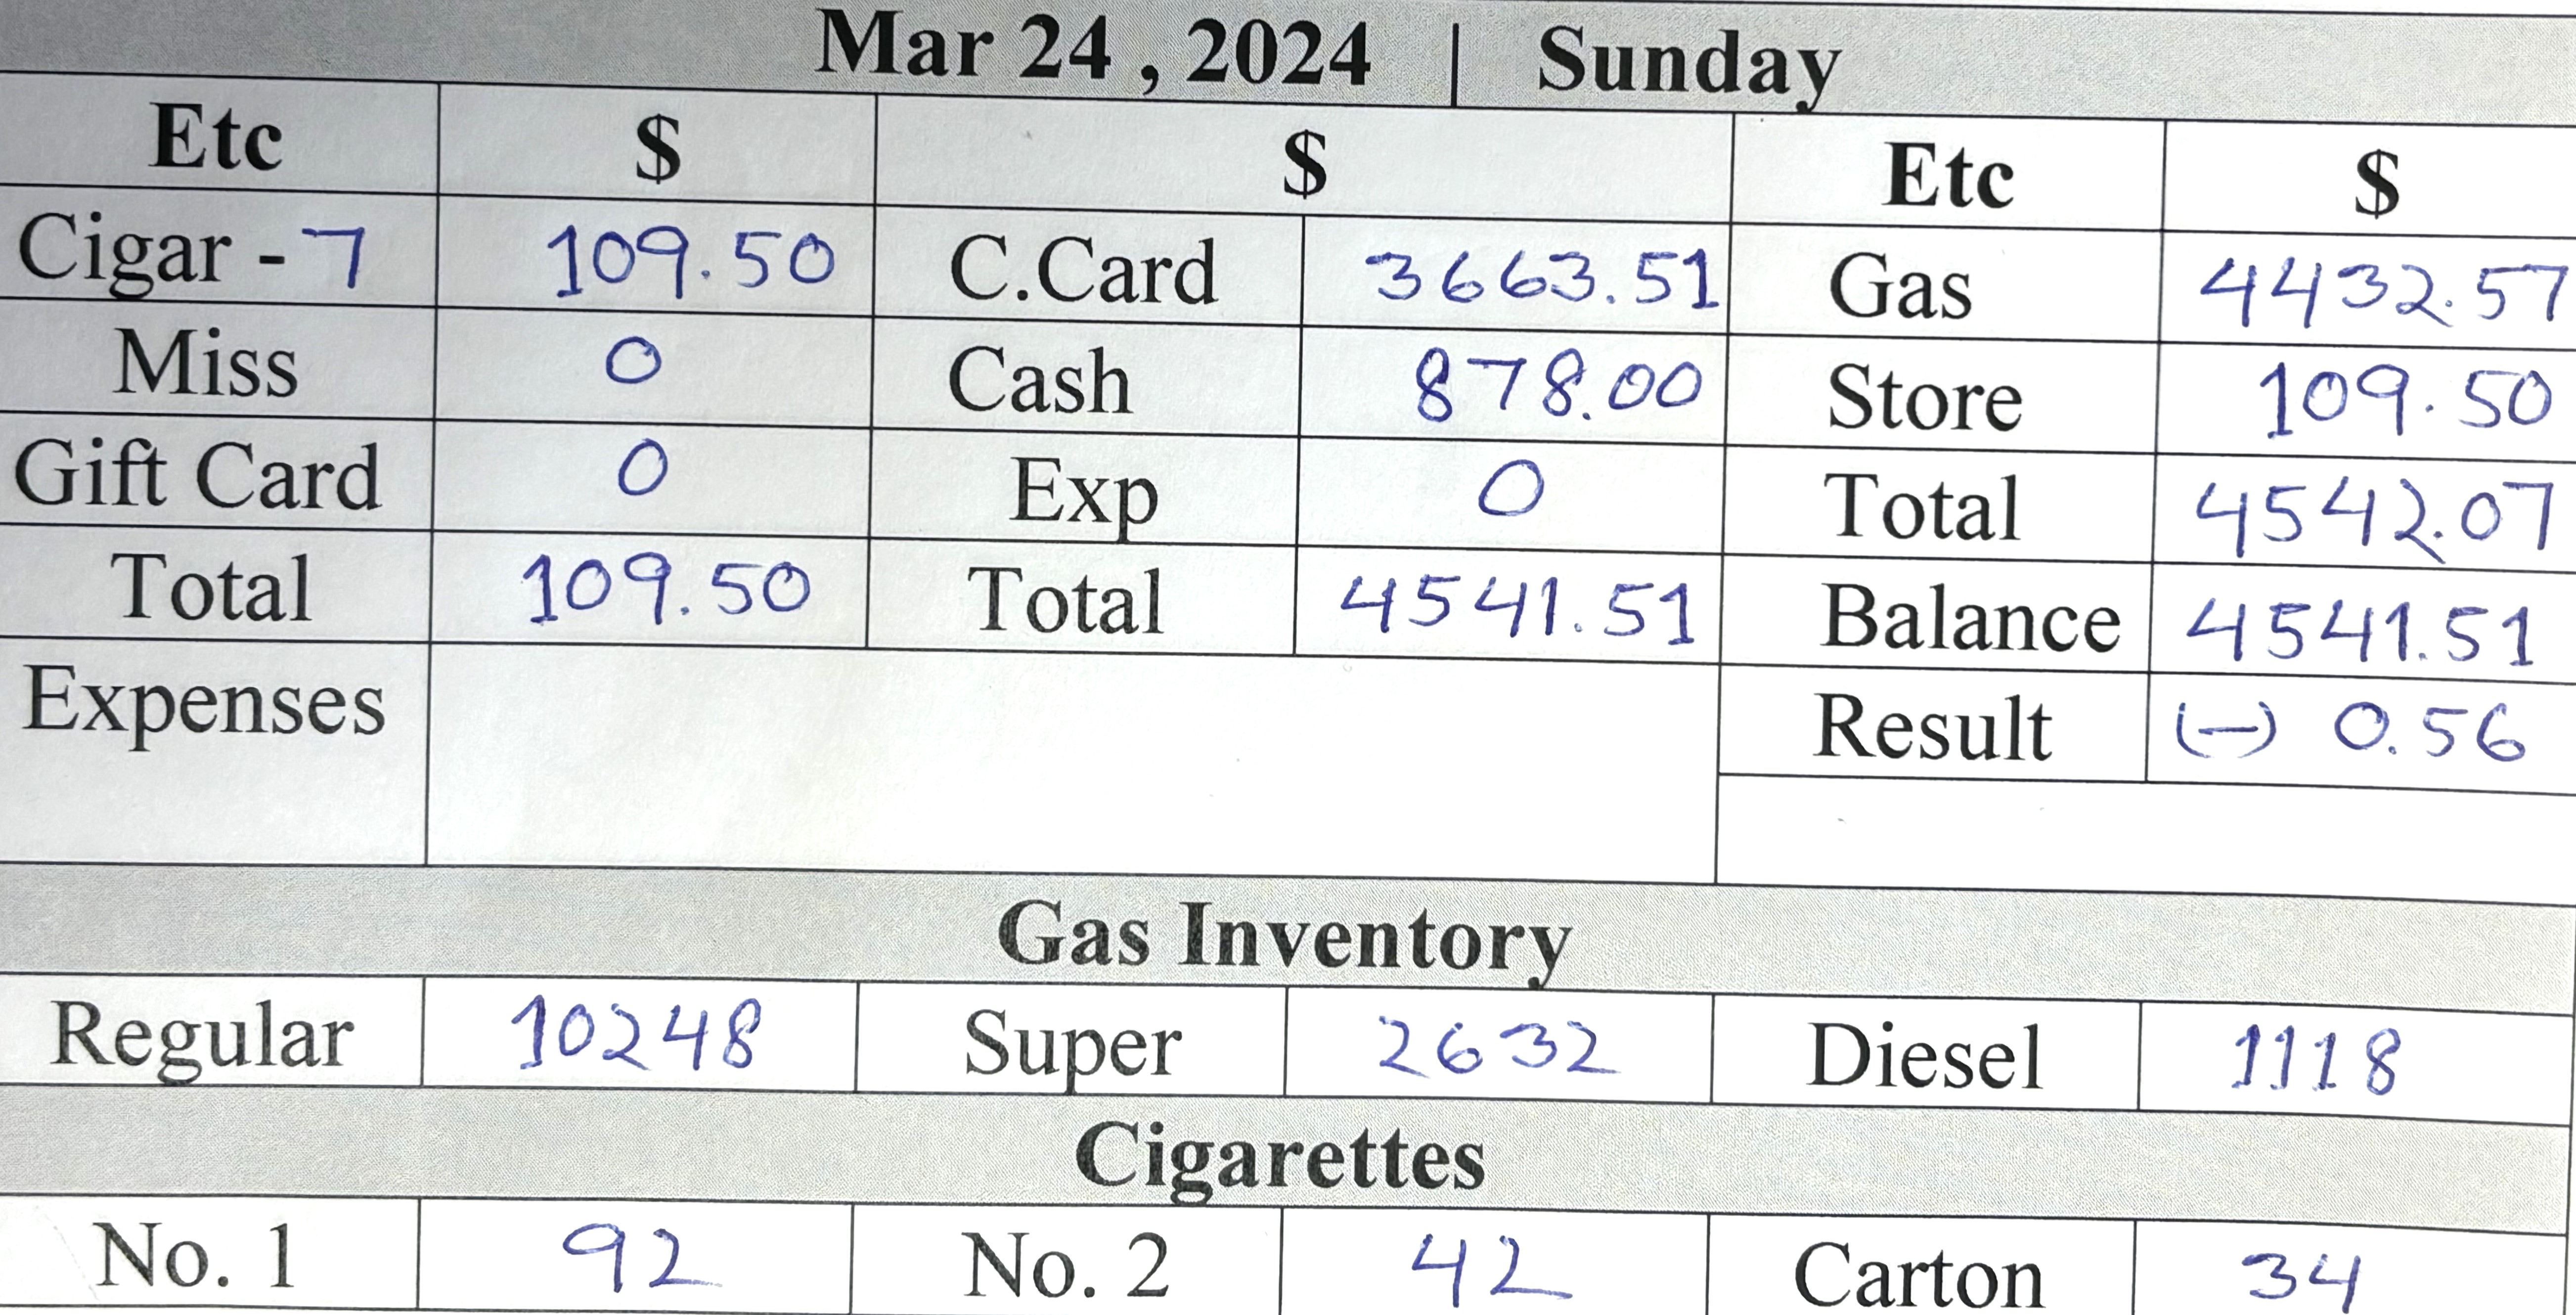 Mar 24 , 2024 | Sunday
Etc $ $ Etc $
Cigar - 7 109.50 C.Card 3663.51 Gas 4432.57
Miss 0 Cash 878.00 Store 109.50
Gift Card 0 Exp 0 Total 4542.07
Total 109.50 Total 4541.51 Balance 4541.51
Expenses Result (-) 0.56
Gas Inventory
Regular 10248 Super 2632 Diesel 1118
Cigarettes
No. 1 92 No. 2 42 Carton 34